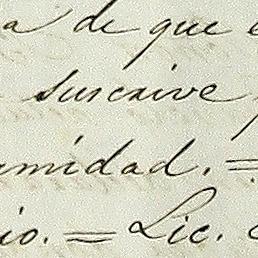 a de que e
suscrive
amidad. =
io. = Lic.